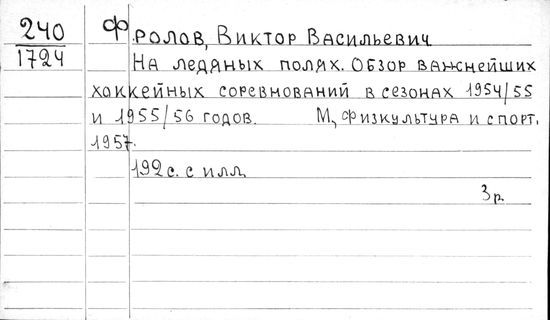 240
1724
Фролов, Виктор Васильевич
На ледяных полях. Обзор важнейших
хоккейных соревнований в сезонах 1954/55
и 1955/56 годов. М, Физкультура и спорт.
1957.
192 с. с илл.
3 р.